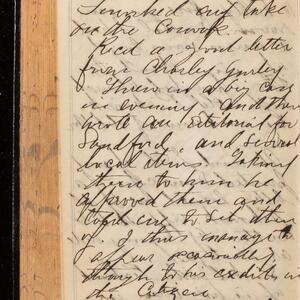 and take
on the
Rec'd a good letter
from Charley
Threw in a big case
in evening and then
wrote an editorial for
Sandford, and several
local items. Taking
them to him he
approved them and
told me to set them
up. I thus manage to
appear occasionally,
though to his credit, in
the Citizen